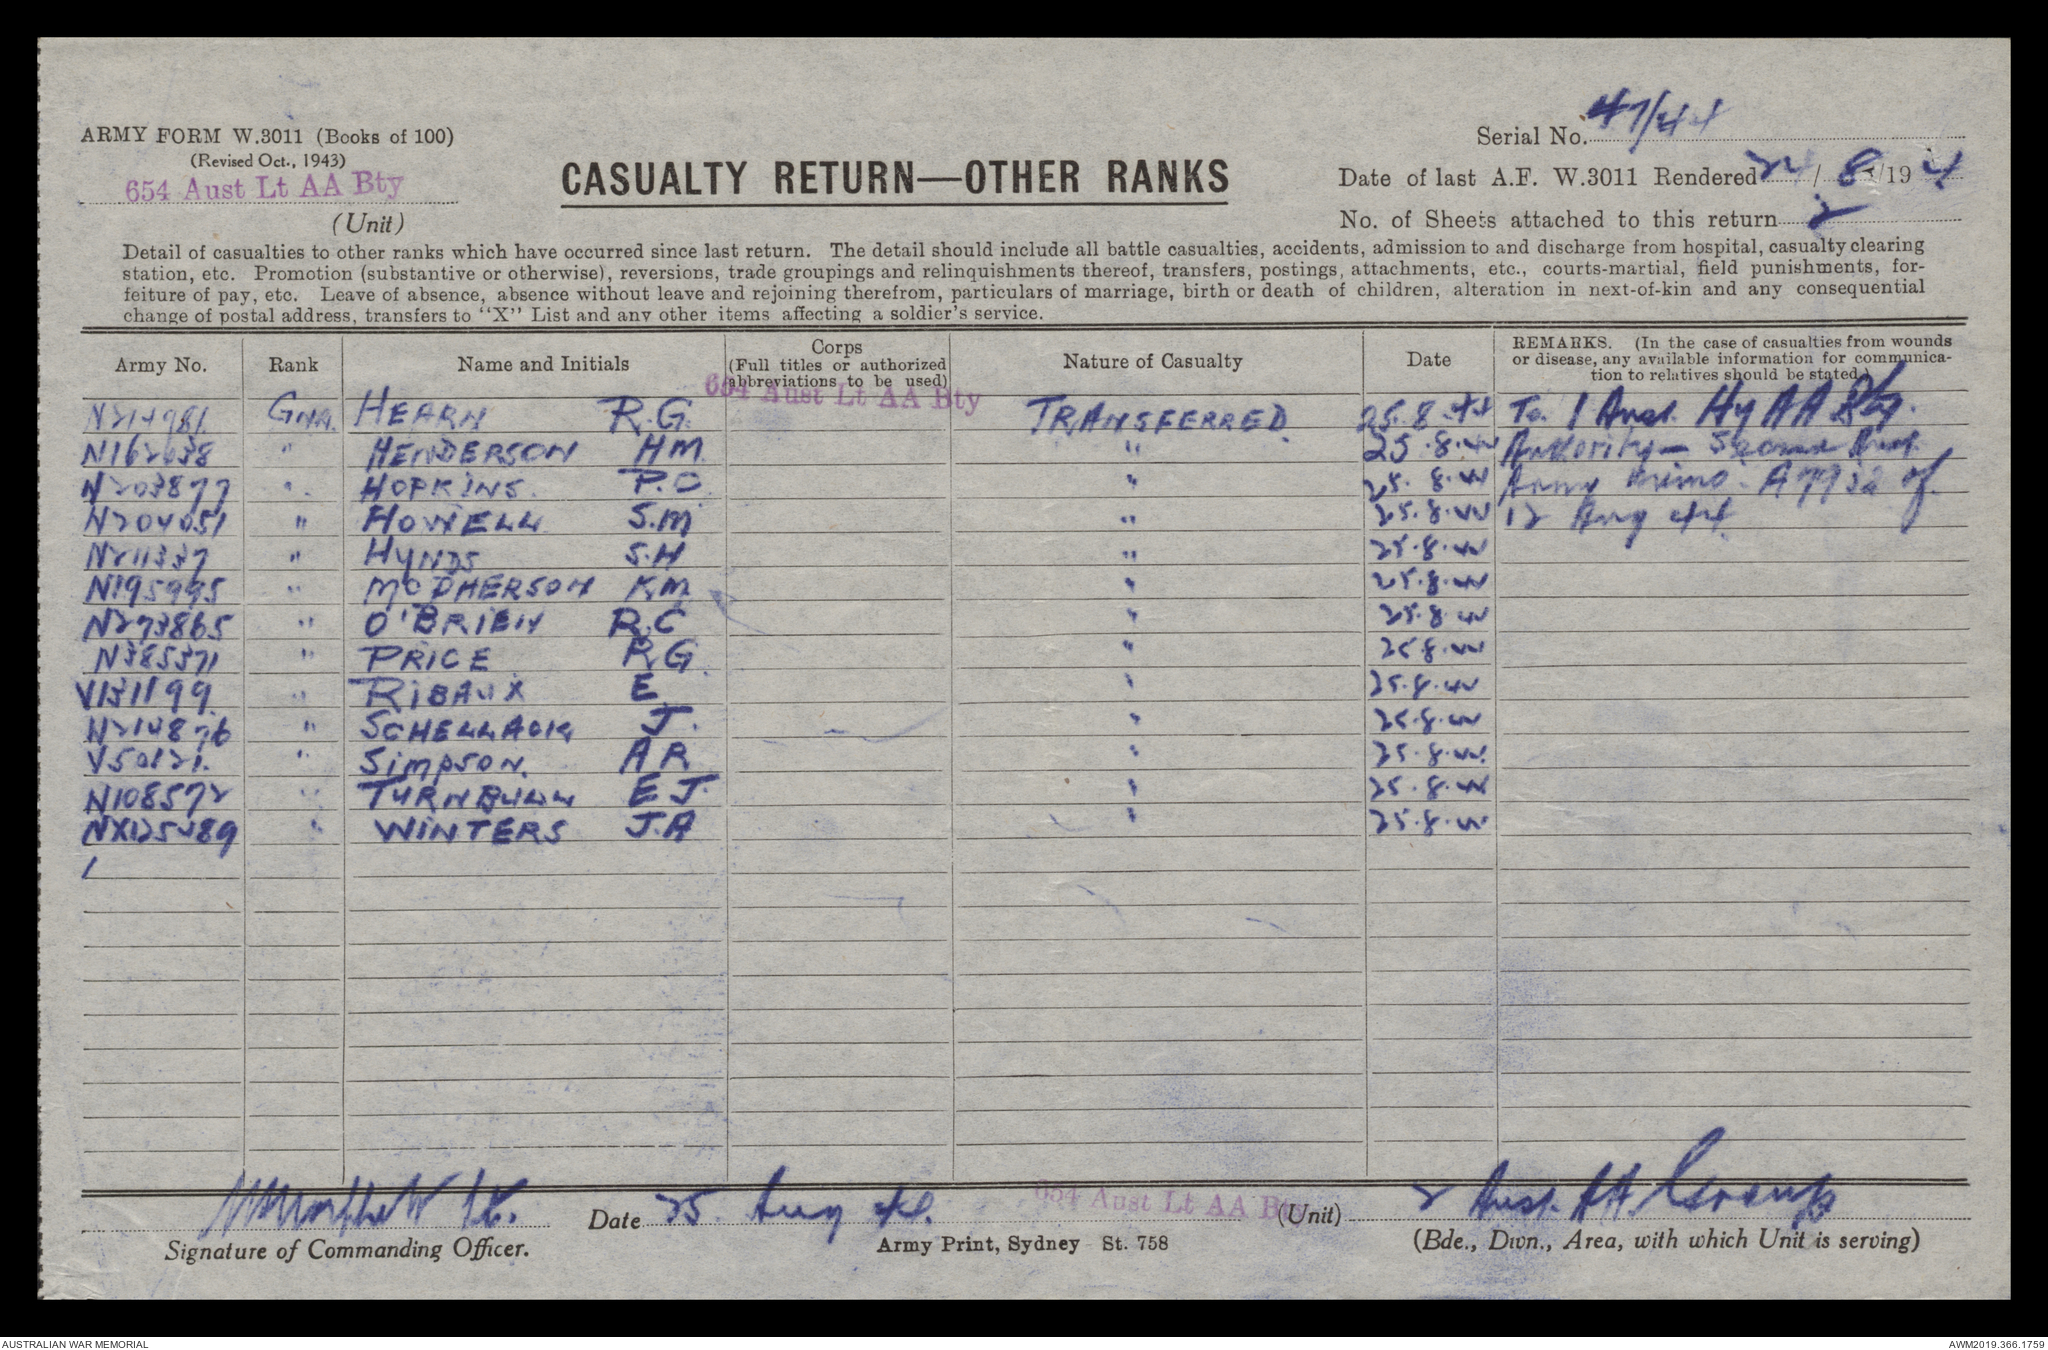 ARMY FORM W.3011 (Books of 100)
(Revised Oct., 1943)
654 Aust Lt AA Bty
(Unit)
CASUALTY RETURN—OTHER RANKS
Serial No. 47/44
Date of last A.F. W.3011 Rendered 24/8/194
No. of Sheets attached to this return 2
Detail of casualties to other ranks which have occurred since last return. The detail should include all battle casualties, accidents, admission to and discharge from hospital, casualty clearing
station, etc. Promotion (substantive or otherwise), reversions, trade groupings and relinquishments thereof, transfers, postings, attachments, etc., courts-martial, field punishments, for-
feiture of pay, etc. Leave of absence, absence without leave and rejoining therefrom, particulars of marriage, birth or death of children, alteration in next-of-kin and any consequential
change of postal address, transfers to "X" List and any other items affecting a soldier's service.
Army No. Rank Name and Initials Corps (Full titles or authorized abbreviations to be used) Nature of Casualty Date REMARKS. (In the case of casualties from wounds or disease, any available information for communica-tion to relatives should be stated.)
654 Aust Lt AA Bty
N214981 GNR. HEARN R.G. TRANSFERRED 25.8.44 To 1 Aust. Hy AA Bty.
N162638 " HENDERSON H.M. " 25.8.44 Authority - Second Aust.
N203877 " HOPKINS. P.C " 25.8.44 Army Memo. of
N204051 " HOWELL S.M " 25.8.44 12 Aug 44
N211337 " HYNDS S.H " 25.8.44
N195995 " MCPHERSON K.M. " 25.8.44
N273865 " O'BRIEN R.C " 25.8.44
N385371 " PRICE R.G. " 25.8.44
V131199 " RIBAUX E " 25.8.44
N214876 " SCHELLACK J. " 25.8.44
V50121. " SIMPSON. A R " 25.8.44
N108572 " TURNBULL E J. " 25.8.44
NX125489 " WINTERS J.A " 25.8.44
Lt.
Signature of Commanding Officer.
Date 25 Aug 44.
654 Aust Lt AA Bty (Unit)
2 Aust. AA Group
(Bde., Divn., Area, with which Unit is serving)
Army Print, Sydney St. 758
AUSTRALIAN WAR MEMORIAL
AWM2019.366.1759